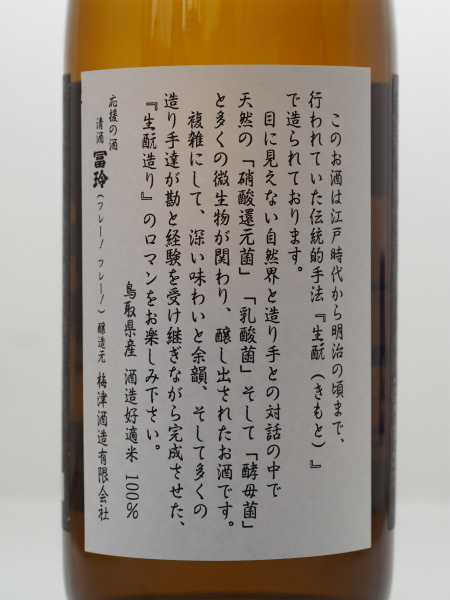 このお酒は江戸時代から明治の頃まで、
行われていた伝統的手法『生酛(きもと)』
で造られております。
目に見えない自然界と造り手との対話の中で
天然の「硝酸還元菌」「乳酸菌」そして「酵母菌」
と多くの微生物が関わり、醸し出されたお酒です。
複雑にして、深い味わいと余韻、そして多くの
造り手達が勘と経験を受け継ぎながら完成させた、
『生酛造り』のロマンをお楽しみ下さい。
鳥取県産 酒造好適米 100%
応援の酒
清酒 冨玲(フレー!フレー!)醸造元 梅津酒造有限会社